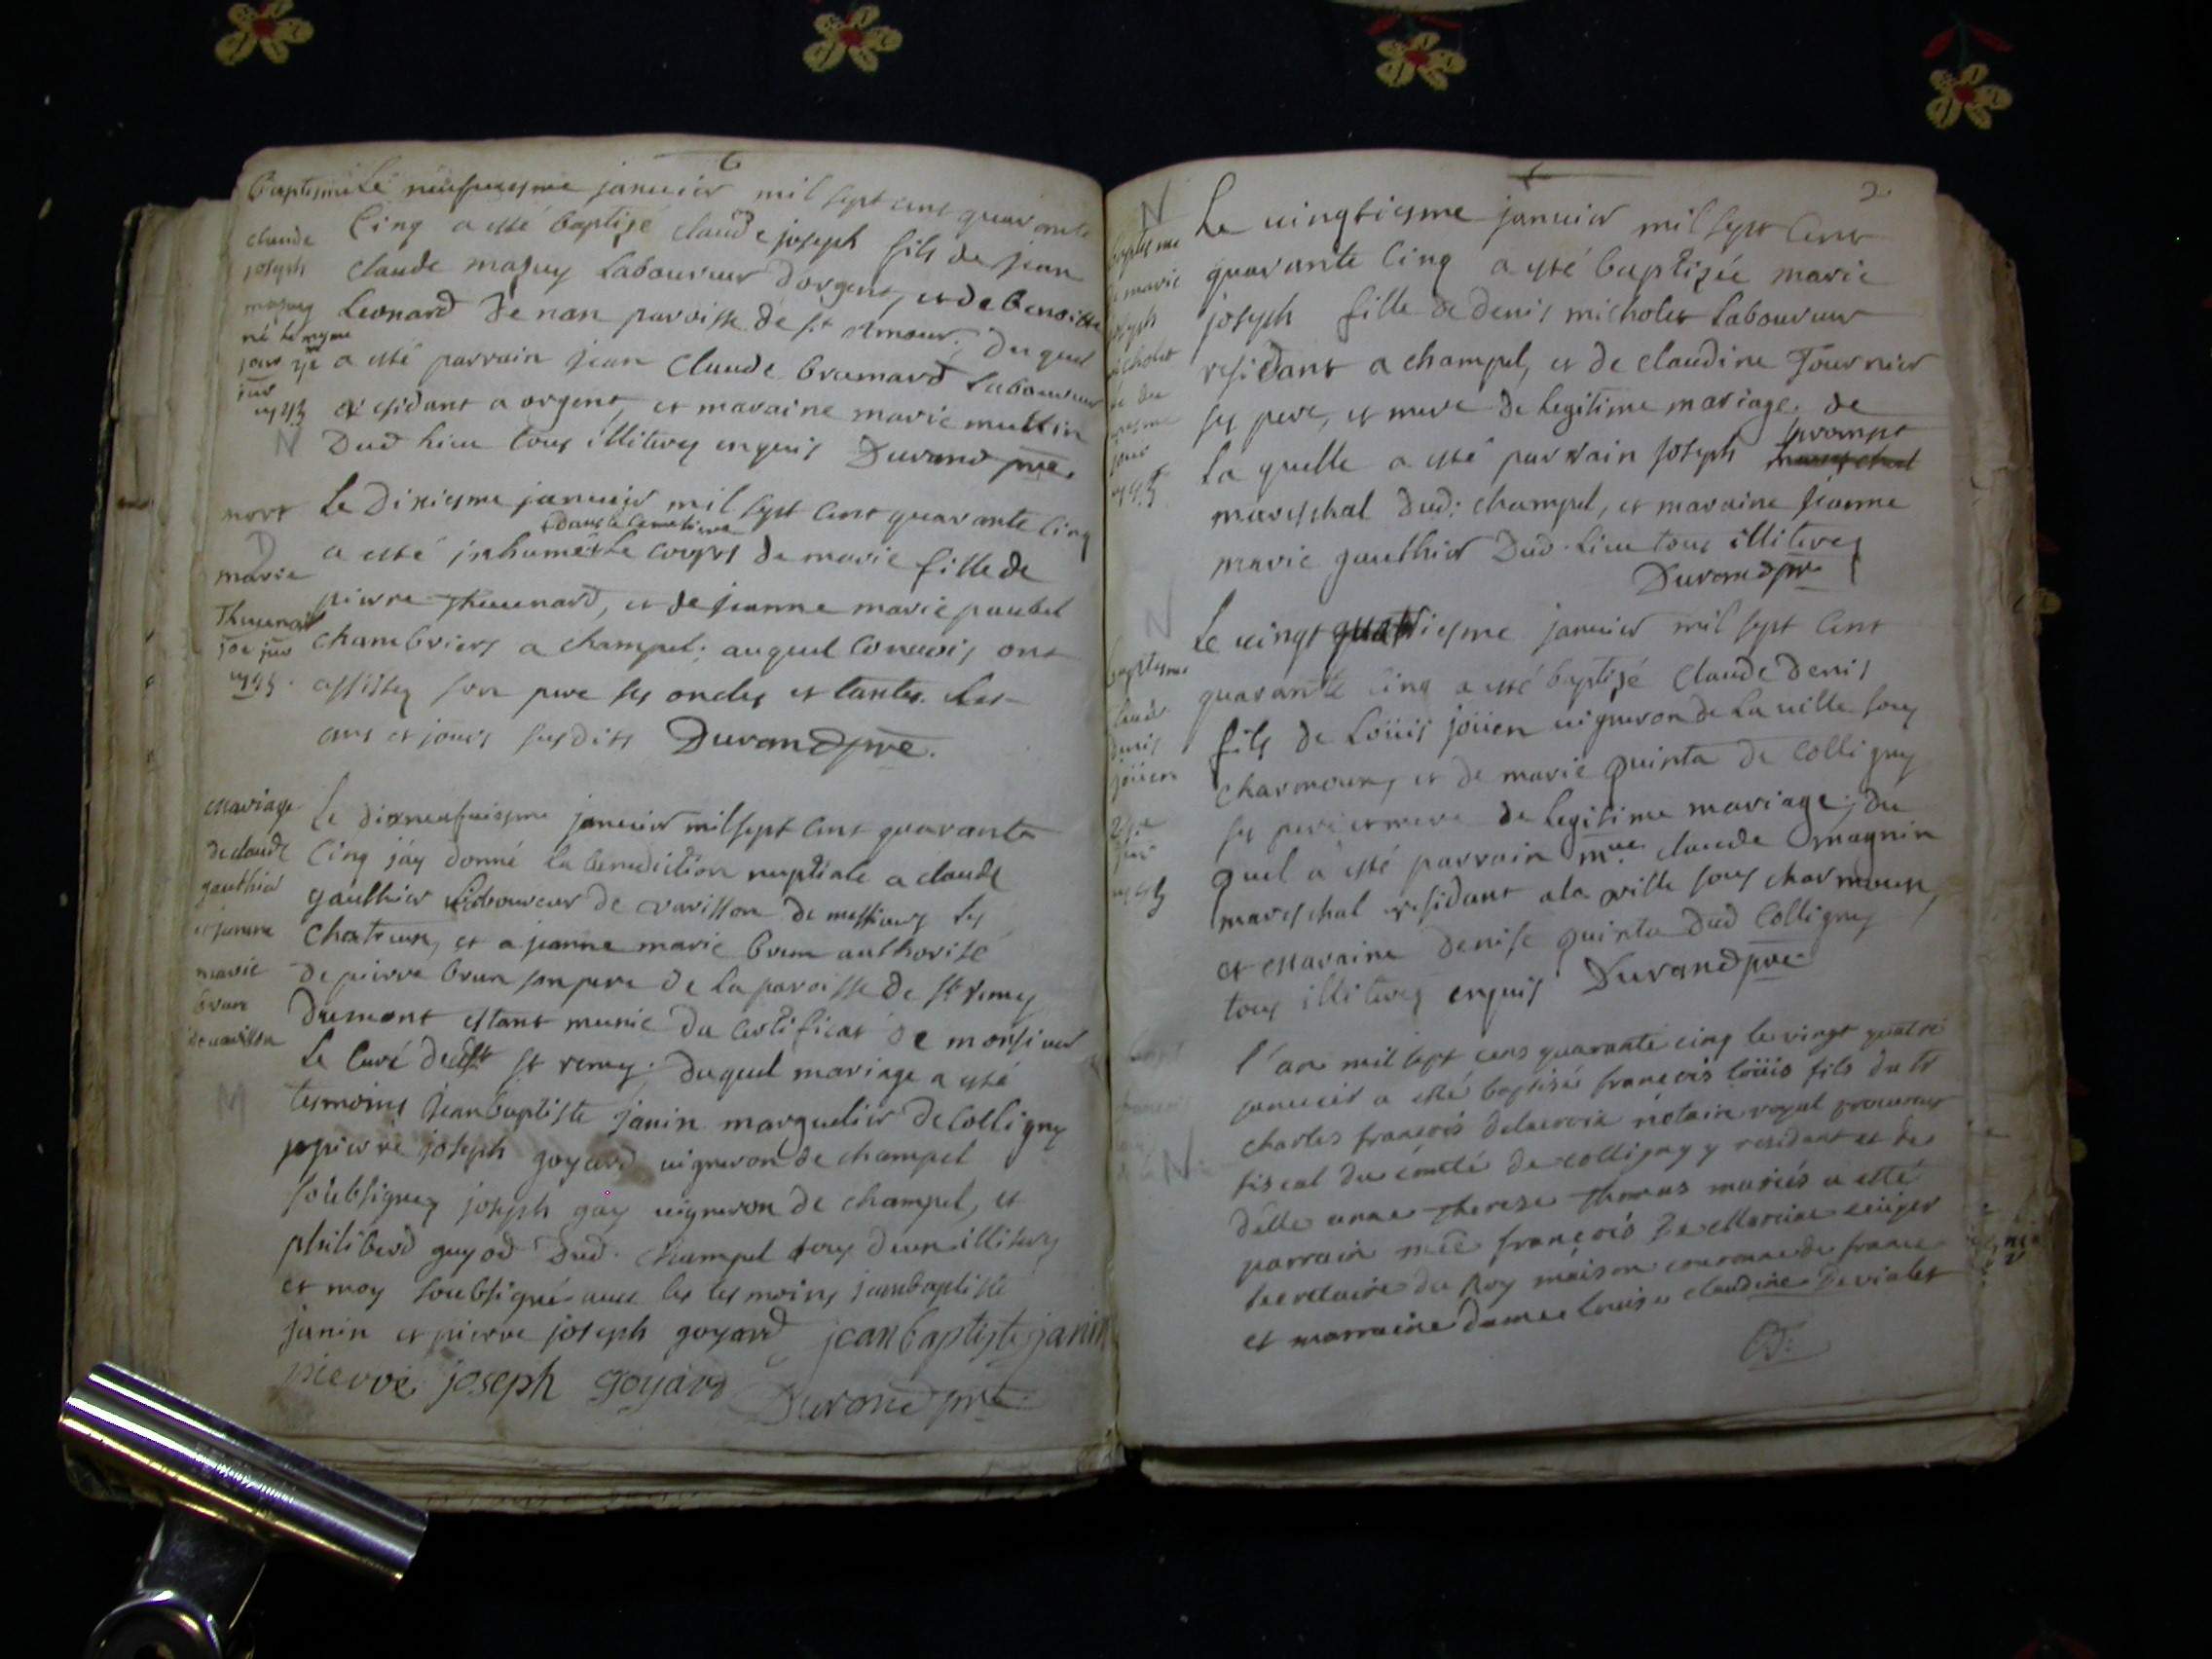 Baptesme
claude
joseph
né le mesme
jour
N
Le neufuiesme januier mil sept cent quarante
Cinq a esté baptizé claude joseph fils de jean
claude mazuy Laboureur d'orgent, et de benoiste
Leonard de nan paroisse de st Amour; du quel
a esté parrain jean Claude bramard Laboureur
residant a orgent, et maraine marie muttin
Dud lieu tous illiteres enquis Durand pre.
mort
D
marie
Theuenard
Le Dixiesme januier mil sept cent quarante Cinq
dans le Cemetiere
a esté jnhumé Le corps de marie fille de
pierre Theuenard, et de jeanne marie paubel
chambriers a champel; auquel Conuois ont
assistez son pere ses oncles et tantes. Les
ans et jours susdits Durand pre.
Mariage
de claude
gauthier
et jeanne
marie
brun
M
Le dixneufuiesme januier mil sept cent quarante
Cinq j'ay donné la benediction nuptiale a claude
gauthier Laboureur de de messieurs les
chartreux, et a jeanne marie brun authorisé
de pierre brun son pere de la paroisse de st remy
Dumont estant munie du certificat de monsieur
Le Curé dudit st remy; duquel mariage a esté
tesmoins Jean baptiste janin marguelier de Colligny
pierre joseph goyard uigneron de champel
soubsignez joseph gay uigneron de champel, et
philiberd guyod Dud. champel illiteres
et moy soubsigné auec les tesmoins jean baptiste
janin et pierre joseph goyard jean baptiste janin
pierre joseph goyard Durand pre
2.
N
baptesme
marie
joseph
Le uingtiesme januier mil sept Cent
quarante Cinq a esté baptizée marie
joseph fille de denis micholet Laboureur
residant a champel, et de claudine Fournier
ses pere, et mere de legitime mariage; de
prompt
La quelle a esté parrain joseph
mareschal Dud: champel, et maraine jeanne
marie gauthier Dud. Lieu tous illiteres
Durand pre
N
baptesme
denis
joüen
Le uingt quatriesme januier mil sept Cent
quarante Cinq a esté baptizé Claude Denis
fils de Loüis joüen uigneron de La uille sous
charmoux, et de marie quinta de Colligny
ses pere et mere de legitime mariage; du
quel a esté parrain mre claude magnin
mareschal residant a la ville sous charmoux,
et Maraine denise quinta Dud Colligny
tous illiteres enquis Durand pre.
N
l'an mil sept cens quarante cinq le vingt quatre
januier a esté baptisé françois loüis fils du sr
charles françois delacroix notaire royal procureur
fiscal du comté de colligny y residant et de
delle anne Therese Thomas mariés a esté
parrain mre françois De
secretaire du Roy maison couronne de france
et marraine Dame louise claudine De violet